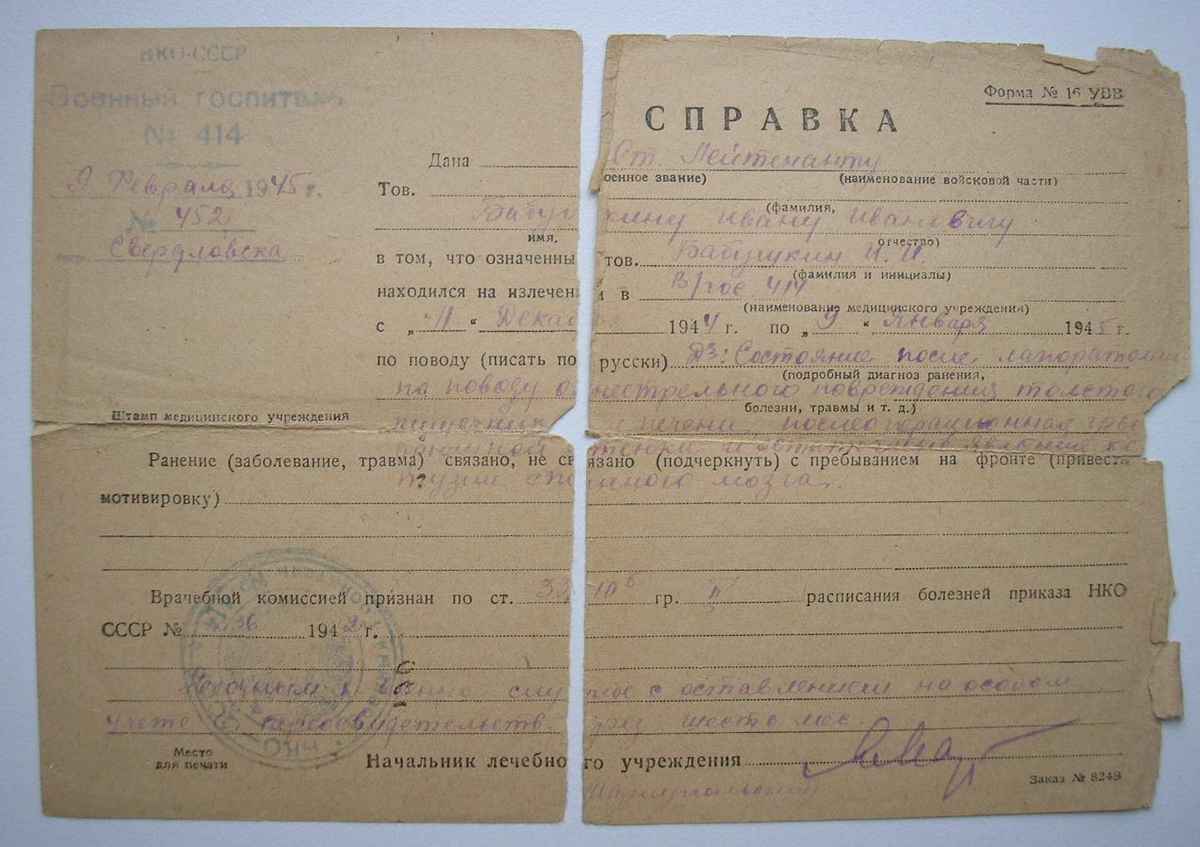 НКО-СССР
Военный госпиталь
№ 414
9 Февраля 1945 г.
№ 452
Свердловска
Штамп медицинского учреждения
Форма № 16 УВВ
СПРАВКА
Дана Ст. Лейтенанту
военное звание) (наименование войсковой части)
Тов. (фамилия,
Бабушкину Ивану Ивановичу
имя, отчество)
в том, что означенный тов. Бабушкин И. И.
(фамилия и инициалы)
находился на излечении в В/гос 414
(наименование медицинского учреждения)
с „11“ Декабря 1944 г. по „9“ января 1945 г.
по поводу (писать по русски) Дз: Состояние после лапоратомии
(подробный диагноз ранения,
по поводу огнестрельного повреждения толстого
болезни, травмы и т. д.)
и печени, послеоперационная
Ранение (заболевание, травма) связано, не связано (подчеркнуть) с пребыванием на фронте (привести
мозга.
мотивировку)
Врачебной комиссией признан по ст. гр. II расписания болезней приказа НКО
СССР № 336 1942 г.
с оставлением на особом
учете шесть мес.
Место
для печати
Начальник лечебного учреждения
Заказ № 8249